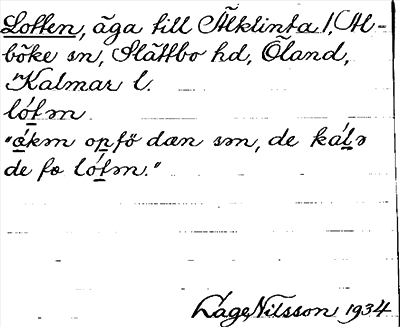 Lotten, äga till Älklinta 1, Al-
böke sn, Slättbo hd, Öland,
Kalmar l.
lótən
"ákən opfö dæn sən, de kálə
de fə lótən."
Låge Nilsson 1934